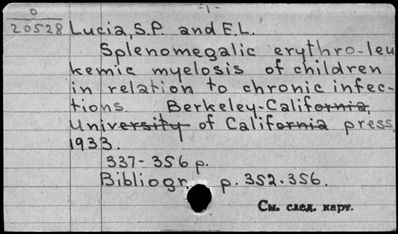 -1-
D
20528 Lucia, S.P. and E.L.
Splenomegalic erythro-leu
kemic myelosis of children
in relation to chronic infec-
tions. Berkeley-California,
University of California press,
1933.
337-356 p.
Bibliogr. p. 352-356.
См. след. карт.